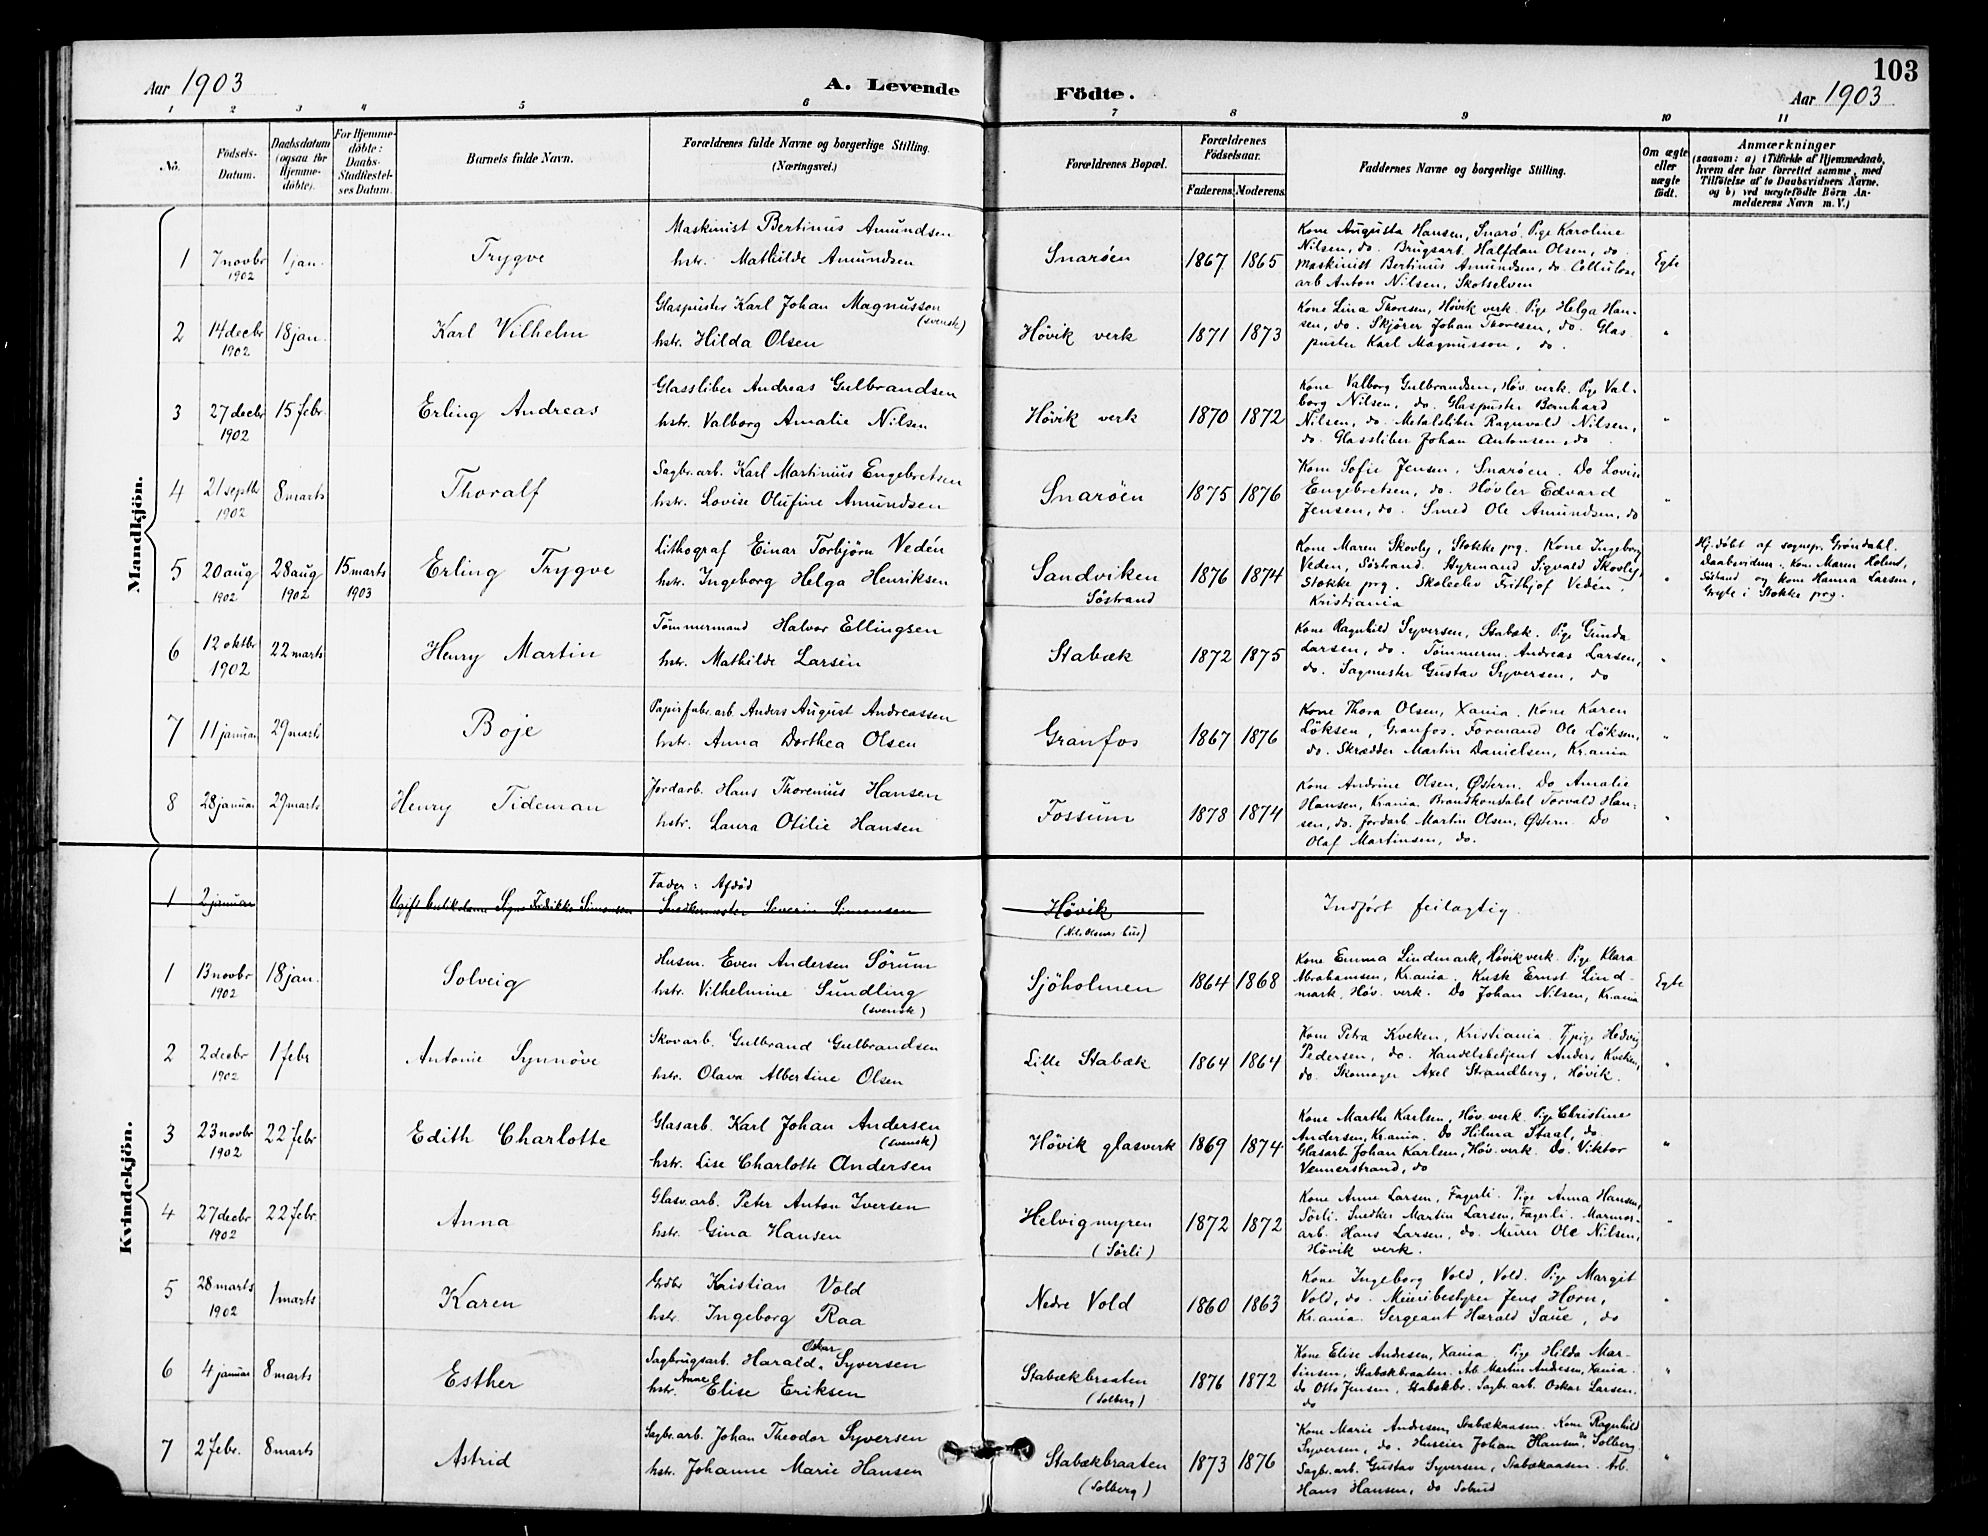 103
Aar 1903
A. Levende
Födte.
Aar 1903
1 2 3 4 5 6 7 8 9 10 11
No.
Födsels-
Datum.
Daabsdatum
(ogsaa for
Hjemme-
döbte).
For Hjemme-
döbte:
Daabs-
Stadfæstel-
ses Datum.
Barnets fulde Navn.
Forældrenes fulde Navne og borgerlige Stilling.
(Næringsvei.)
Forældrenes Bopæl.
Forældrenes
Födselsaar.
Faderens.
Moderens.
Faddernes Navne og borgerlige Stilling.
Om ægte
eller
uægte
födt.
Anmærkninger
(saasom: a) i Tilfælde af Hjemmedaab,
hvem der har forrettet samme, med
Tilföielse af to Daabsvidners Navne,
og b) ved uægtefödte Börn An-
melderens Navn m. V.)
Mandkjön.
1
7 novbr
1902
1 jan.
Trygve
Maskinist Bertinus Amundsen
hstr. Mathilde Amundsen
Snarøen
1867
1865
Kone Augusta Hansen, Snarø. Pige Karoline
Nilsen, do. Brugsarb. Halfdan Olsen, do
Maskinist Bertinus Amundsen, do. Cellulose
arb Anton Nilsen, Skotselven
Egte
2
14 decbr
1902
18 jan.
Karl Vilhelm
Glaspuster Karl Johan Magnusson
(svensk)
hstr. Hilda Olsen
Høvik verk
1871
1873
Kone Lina Thoresen, Høvik verk. Pige Helga Han-
sen, do. Skjører Johan Thoresen, do. Glas
puster Karl Magnusson, do.
"
3
27 decbr
1902
15 febr.
Erling Andreas
Glassliber Andreas Gulbrandsen
hstr. Valborg Amalie Nilsen
Høvik verk
1870
1872
Kone Valborg Gulbrandsen, Høv. verk. Pige Val-
borg Nilsen, do. Glaspuster Bernhard
Nilsen, do. Metalsliber Ragnvald Nilsen,
do. Glassliber Johan Antonsen, do
"
4
21 septbr
1902
8 marts
Thoralf
Sagbr.arb. Karl Martinius Engebretsen
hstr. Lovise Olufine Amundsen
Snarøen
1875
1876
Kone Sofie Jensen, Snarøen. Do Lovise
Engebretsen, do. Høvler Edvard
Jensen, do. Smed Ole Amundsen, do
"
5
20 aug
1902
28 aug
1902
15 marts
1903
Erling Trygve
Lithograf Einar Torbjörn Vedén
hstr. Ingeborg Helga Henriksen
Sandviken
Søstrand
1876
1874
Kone Maren Skovly, Stokke prg. Kone Ingeborg
Veden, Söstrand. Styrmand Sigvald Skovly,
Stokke prg. Skoleelev Frithjof Vedén,
Kristiania
"
Hj.döbt af sognepr. Grøndahl.
Daabsvidner: Kone Maren Holand,
Söstrand og kone Hanna Larsen,
i Stokke prg.
6
12 oktbr
1902
22 marts
Henry Martin
Tømmermand Halvor Ellingsen
hstr. Mathilde Larsen
Stabæk
1872
1875
Kone Ragnhild Syversen, Stabæk. Pige Gunda
Larsen, do. Tømmerm. Andreas Larsen,
do. Sagmester Gustav Syversen, do
"
7
11 januar
29 marts
Boje
Papirfabr.arb. Anders August Andreassen
hstr. Anna Dorthea Olsen
Granfos
1867
1876
Kone Thora Olsen, Xania. Kone Karen
Löksen, Granfos. Formand Ole Löksen,
do. Skrædder Martin Danielsen, Kr.ania
"
8
28 januar
29 marts
Henry Tideman
Jordarb. Hans Thorenius Hansen
hstr. Laura Otilie Hansen
Fossum
1878
1874
Kone Andrine Olsen, Østern. Do Amalie
Hansen, Krania. Brandkonstabel Torvald Han-
sen, do. Jordarb. Martin Olsen, Østern. Do
Olaf Martinsen, do.
"
Kvindekjön.
1
2 januar
Ugift butikdame Signe Fredrikke Simonsen
Fader: Afdöd
Snedkermester Severin Simonsen
Høvik
(Nils Olsens hus)
Indført feilagtig.
1
13 novbr
1902
18 jan.
Solveig
Husm. Even Andersen Sörum
hstr. Vilhelmine Sundling
(svensk)
Sjöholmen
1864
1868
Kone Emma Lindmark, Høvik verk. Pige Klara
Abrahamsen, Kr.ania. Kusk Ernst Lind-
mark, Høv. verk. Do Johan Nilsen, Kr.ania
Egte
2
2 decbr
1902
1 febr
Antonie Synnöve
Skovarb. Gulbrand Gulbrandsen
hstr. Olava Albertine Olsen
Lille Stabæk
1864
1864
Kone Petra Kveken, Kristiania. Tj.pige Hedvig
Pedersen, do. Handelsbetjent Anders Kveken,
do. Skomager Axel Strandberg, Høvik.
"
3
23 novbr
1902
22 febr
Edith Charlotte
Glasarb. Karl Johan Andersen
(svensk)
hstr. Lise Charlotte Andersen
Høvik glasverk
1869
1874
Kone Marthe Karlsen, Høv. verk. Pige Christine
Andersen, Kr.ania. Do Hilma Staal, do.
Glasarb. Johan Karlsen, Høv. verk. Do. Viktor
Vennerstrand, do
"
4
27 decbr
1902
22 febr.
Anna
Glasv.arb. Peter Anton Iversen
hstr. Gina Hansen
Helvigmyren
(Sörli)
1872
1872
Kone Anne Larsen, Fagerli. Pige Anna Hansen,
Sörli. Snedker Martin Larsen, Fagerli. Marmor-
arb. Hans Larsen, do. Murer Ole Nilsen,
Høvik verk.
"
5
28 marts
1902
1 marts
Karen
Grdbr Kristian Vold
hstr. Ingeborg Raa
Nedre Vold
1860
1863
Kone Ingeborg Vold, Vold. Pige Margit
Vold, do. Meieribestyrer Jens Horn,
Kr.ania. Sergeant Harald Saue, do
"
6
4 januar
8 marts
Esther
Oskar
Sagbrugsarb. Harald Syversen
Anne
hstr. Elise Eriksen
Stabækbraaten
(Solberg)
1876
1872
Kone Elise Andresen, Xania. Pige Hilda Mar-
tinsen, Stabækbraaten. Arb. Martin Andresen, Xania.
Do Otto Jensen, Stabækbr. Sagbr.arb. Oskar Larsen,
do
"
7
2 febr.
8 marts
Astrid
Sagbr.arb. Johan Theodor Syversen
hstr. Johanne Marie Hansen
Stabækbraaten
(Solberg)
1873
1876
Kone Marie Andresen, Stabækaasen. Kone Ragnhild
Syversen, do. Huseier Johan Hansen, Solberg.
Sagbr.arb. Gustav Syversen, Stabækaasen. Arb.
Hans Hansen, do
"